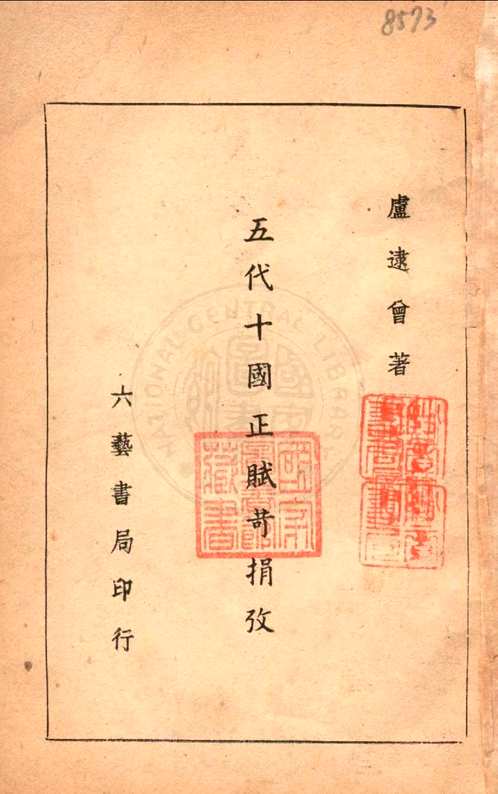 8573
盧逮曾著
五代十國正賦苛捐攷
六藝書局印行
NATIONAL CENTRAL LIBRARY
國家圖書館藏書